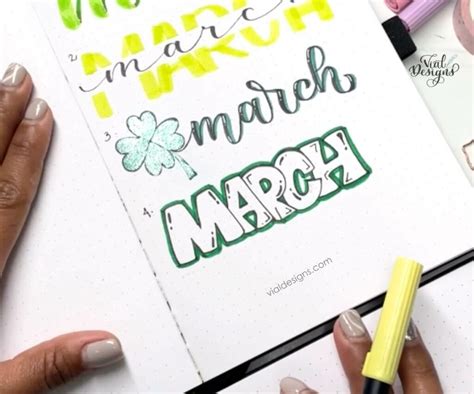 2.
MARCH
march
3.
march
4.
MARCH
vialdesigns.com
Vial
Designs